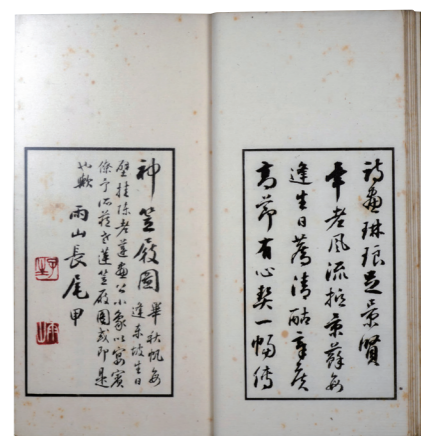 詩畫琳琅足景賢
老風流蘇每
逢生日薦清酤
高節有心契一幅傳
神笠屐圖 畢秋帆每
逢東坡生日
壁挂陳老蓮畫公小象以宴賓
僚予所藏老蓮笠屐圖或即是
此歟 雨山長尾甲